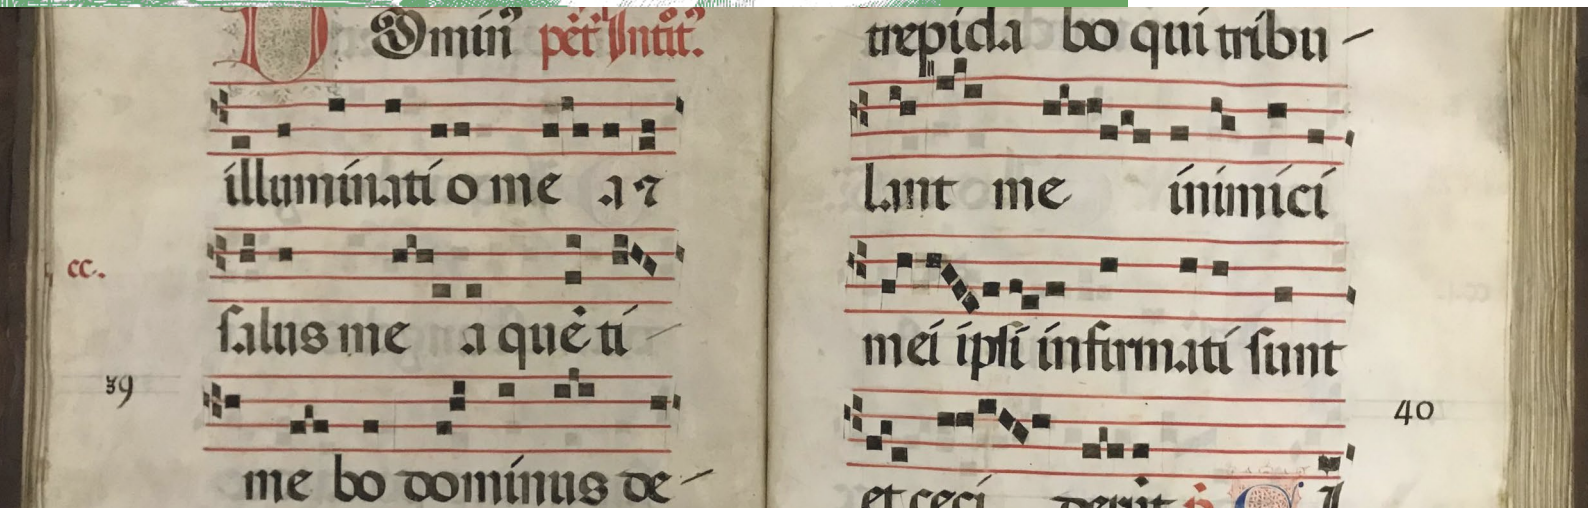 Dominꝰ
illuminati o me a ⁊
cc.
salus me a quē ti
39
me bo dominus de
trepida bo qui tribu
lant me inimici
mei ipsi infirmati sunt
40
et ceci